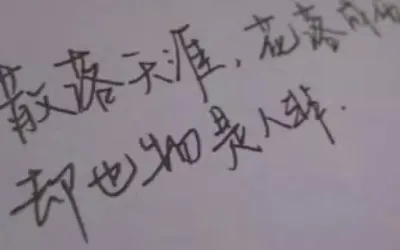 散落天涯,花落
却也物是人非.